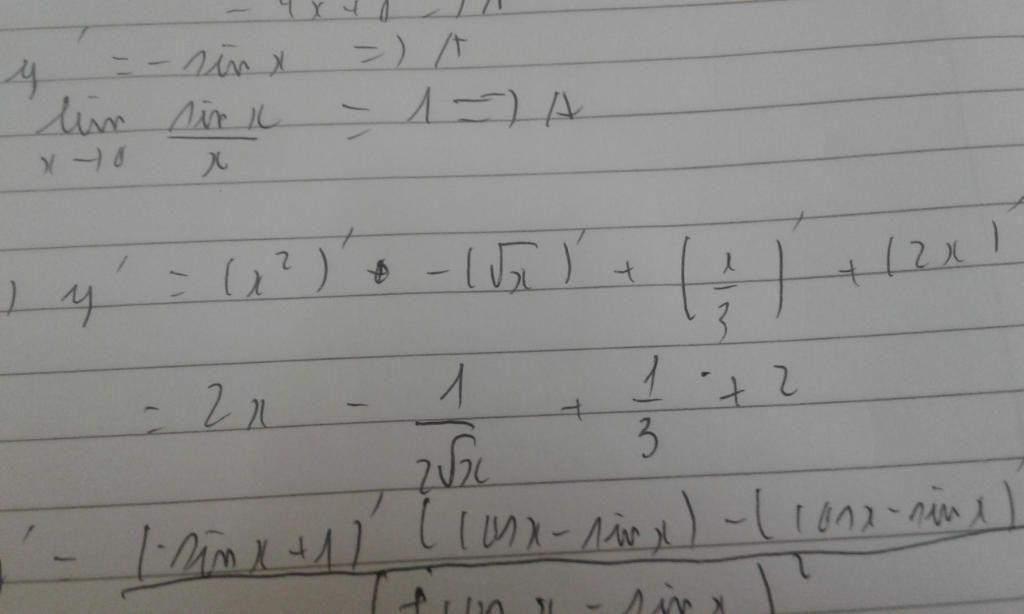 y' = - sin x => A
lim x→0 sin x / x = 1 => A
) y' = (x²)' - (√x)' + (x/3)' + (2x)'
= 2x - 1/(2√x) + 1/3 + 2
' = (sin x + 1)' (cos x - sin x) - (cos x - sin x)'
(cos x - sin x)²